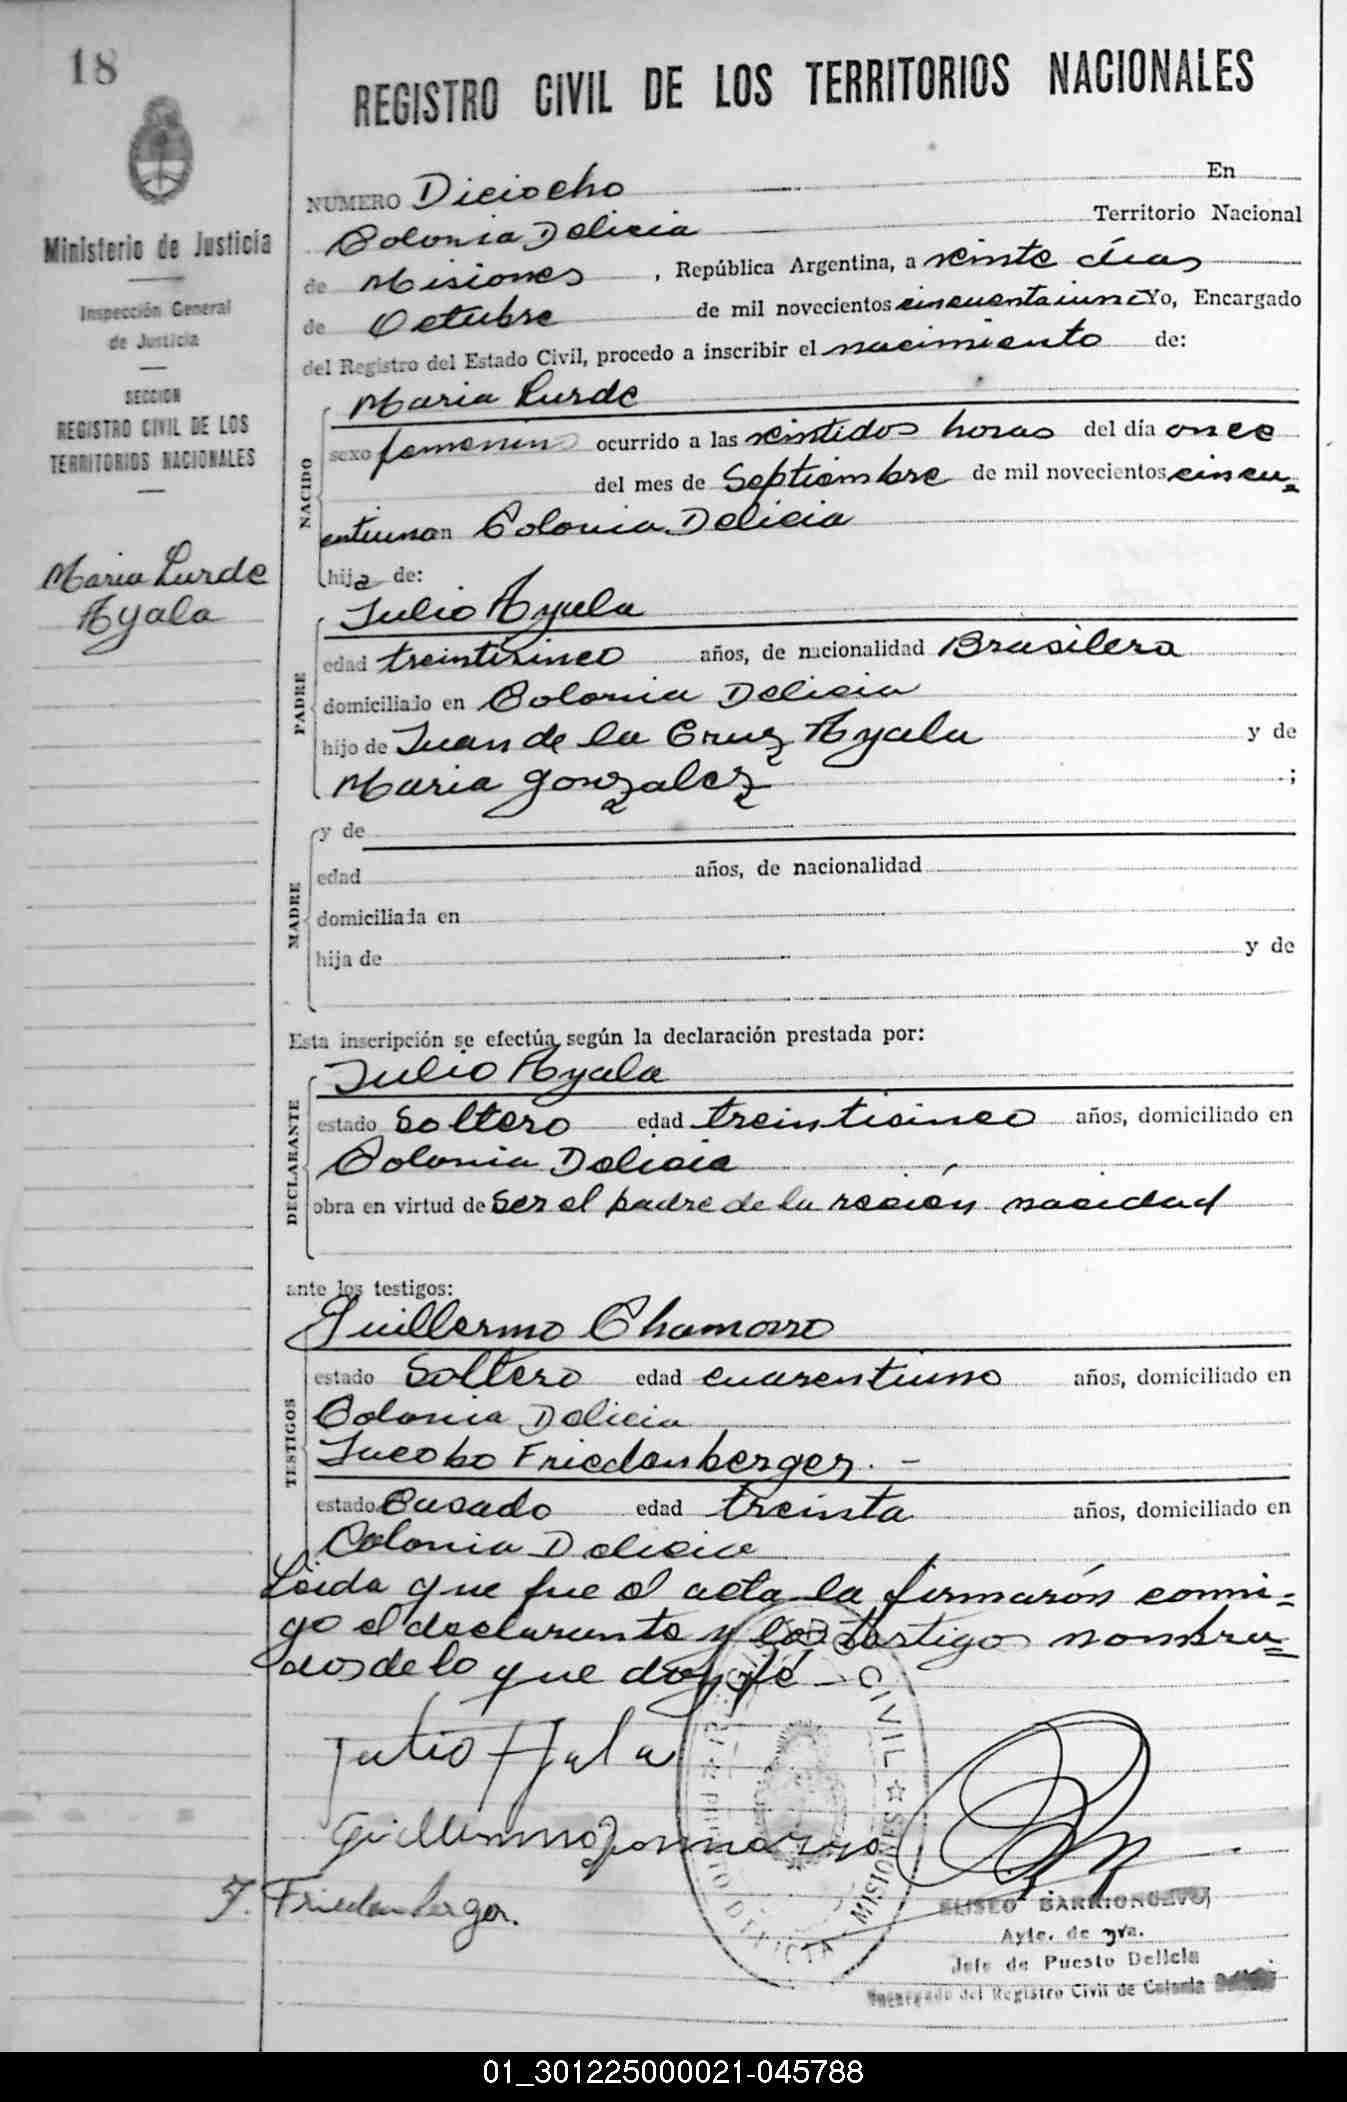 18
REGISTRO CIVIL DE LOS TERRITORIOS NACIONALES
Ministerio de Justicia
Inspección General
de Justicia
SECCION
REGISTRO CIVIL DE LOS
TERRITORIOS NACIONALES
Maria Lurde
Ayala
NUMERO Diciocho En
Colonia Delicia Territorio Nacional
de Misiones, República Argentina, a veinte días
de Octubre de mil novecientos cincuentaiuno Yo, Encargado
del Registro del Estado Civil, procedo a inscribir el nacimiento de:
NACIDO
Maria Lurde
sexo femenino ocurrido a las veintidos horas del día once
del mes de Septiembre de mil novecientos cincu-
entiuno en Colonia Delicia
hija de:
PADRE
Julio Ayala
edad treinticinco años, de nacionalidad Brasilera
domiciliado en Colonia Delicia
hijo de Juan de la Cruz Ayala y de
Maria Gonzalez ;
MADRE
y de
edad años, de nacionalidad
domiciliada en
hija de y de
Esta inscripción se efectúa según la declaración prestada por:
DECLARANTE
Julio Ayala
estado Soltero edad treinticinco años, domiciliado en
Colonia Delicia
obra en virtud de Ser el padre de la recién nacidad
ante los testigos:
TESTIGOS
Guillermo Chamorro
estado Soltero edad cuarentiuno años, domiciliado en
Colonia Delicia
Jacobo Friedenberger. -
estado Casado edad treinta años, domiciliado en
Colonia Delicia
Leida que fue el acta la firmarón conmi=
go el declarante y los testigos nombra=
dos de lo que doy fé -
Julio Ajala
J. Friedenberger.
CIVIL ★ MISIONES
ELISEO BARRIONUEVO
Ayte. de 3ra.
Jefe de Puesto Delicia
Encargado del Registro Civil de Colonia Delicia
01_301225000021-045788